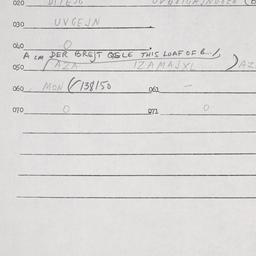 020
030 UVGEJN
040 O
A CM DER BREJT QELE THIS LOAF OF B...
050 AZA IZAMAJXL AZ
060 MON (138/50 061 -
070 O 071 O